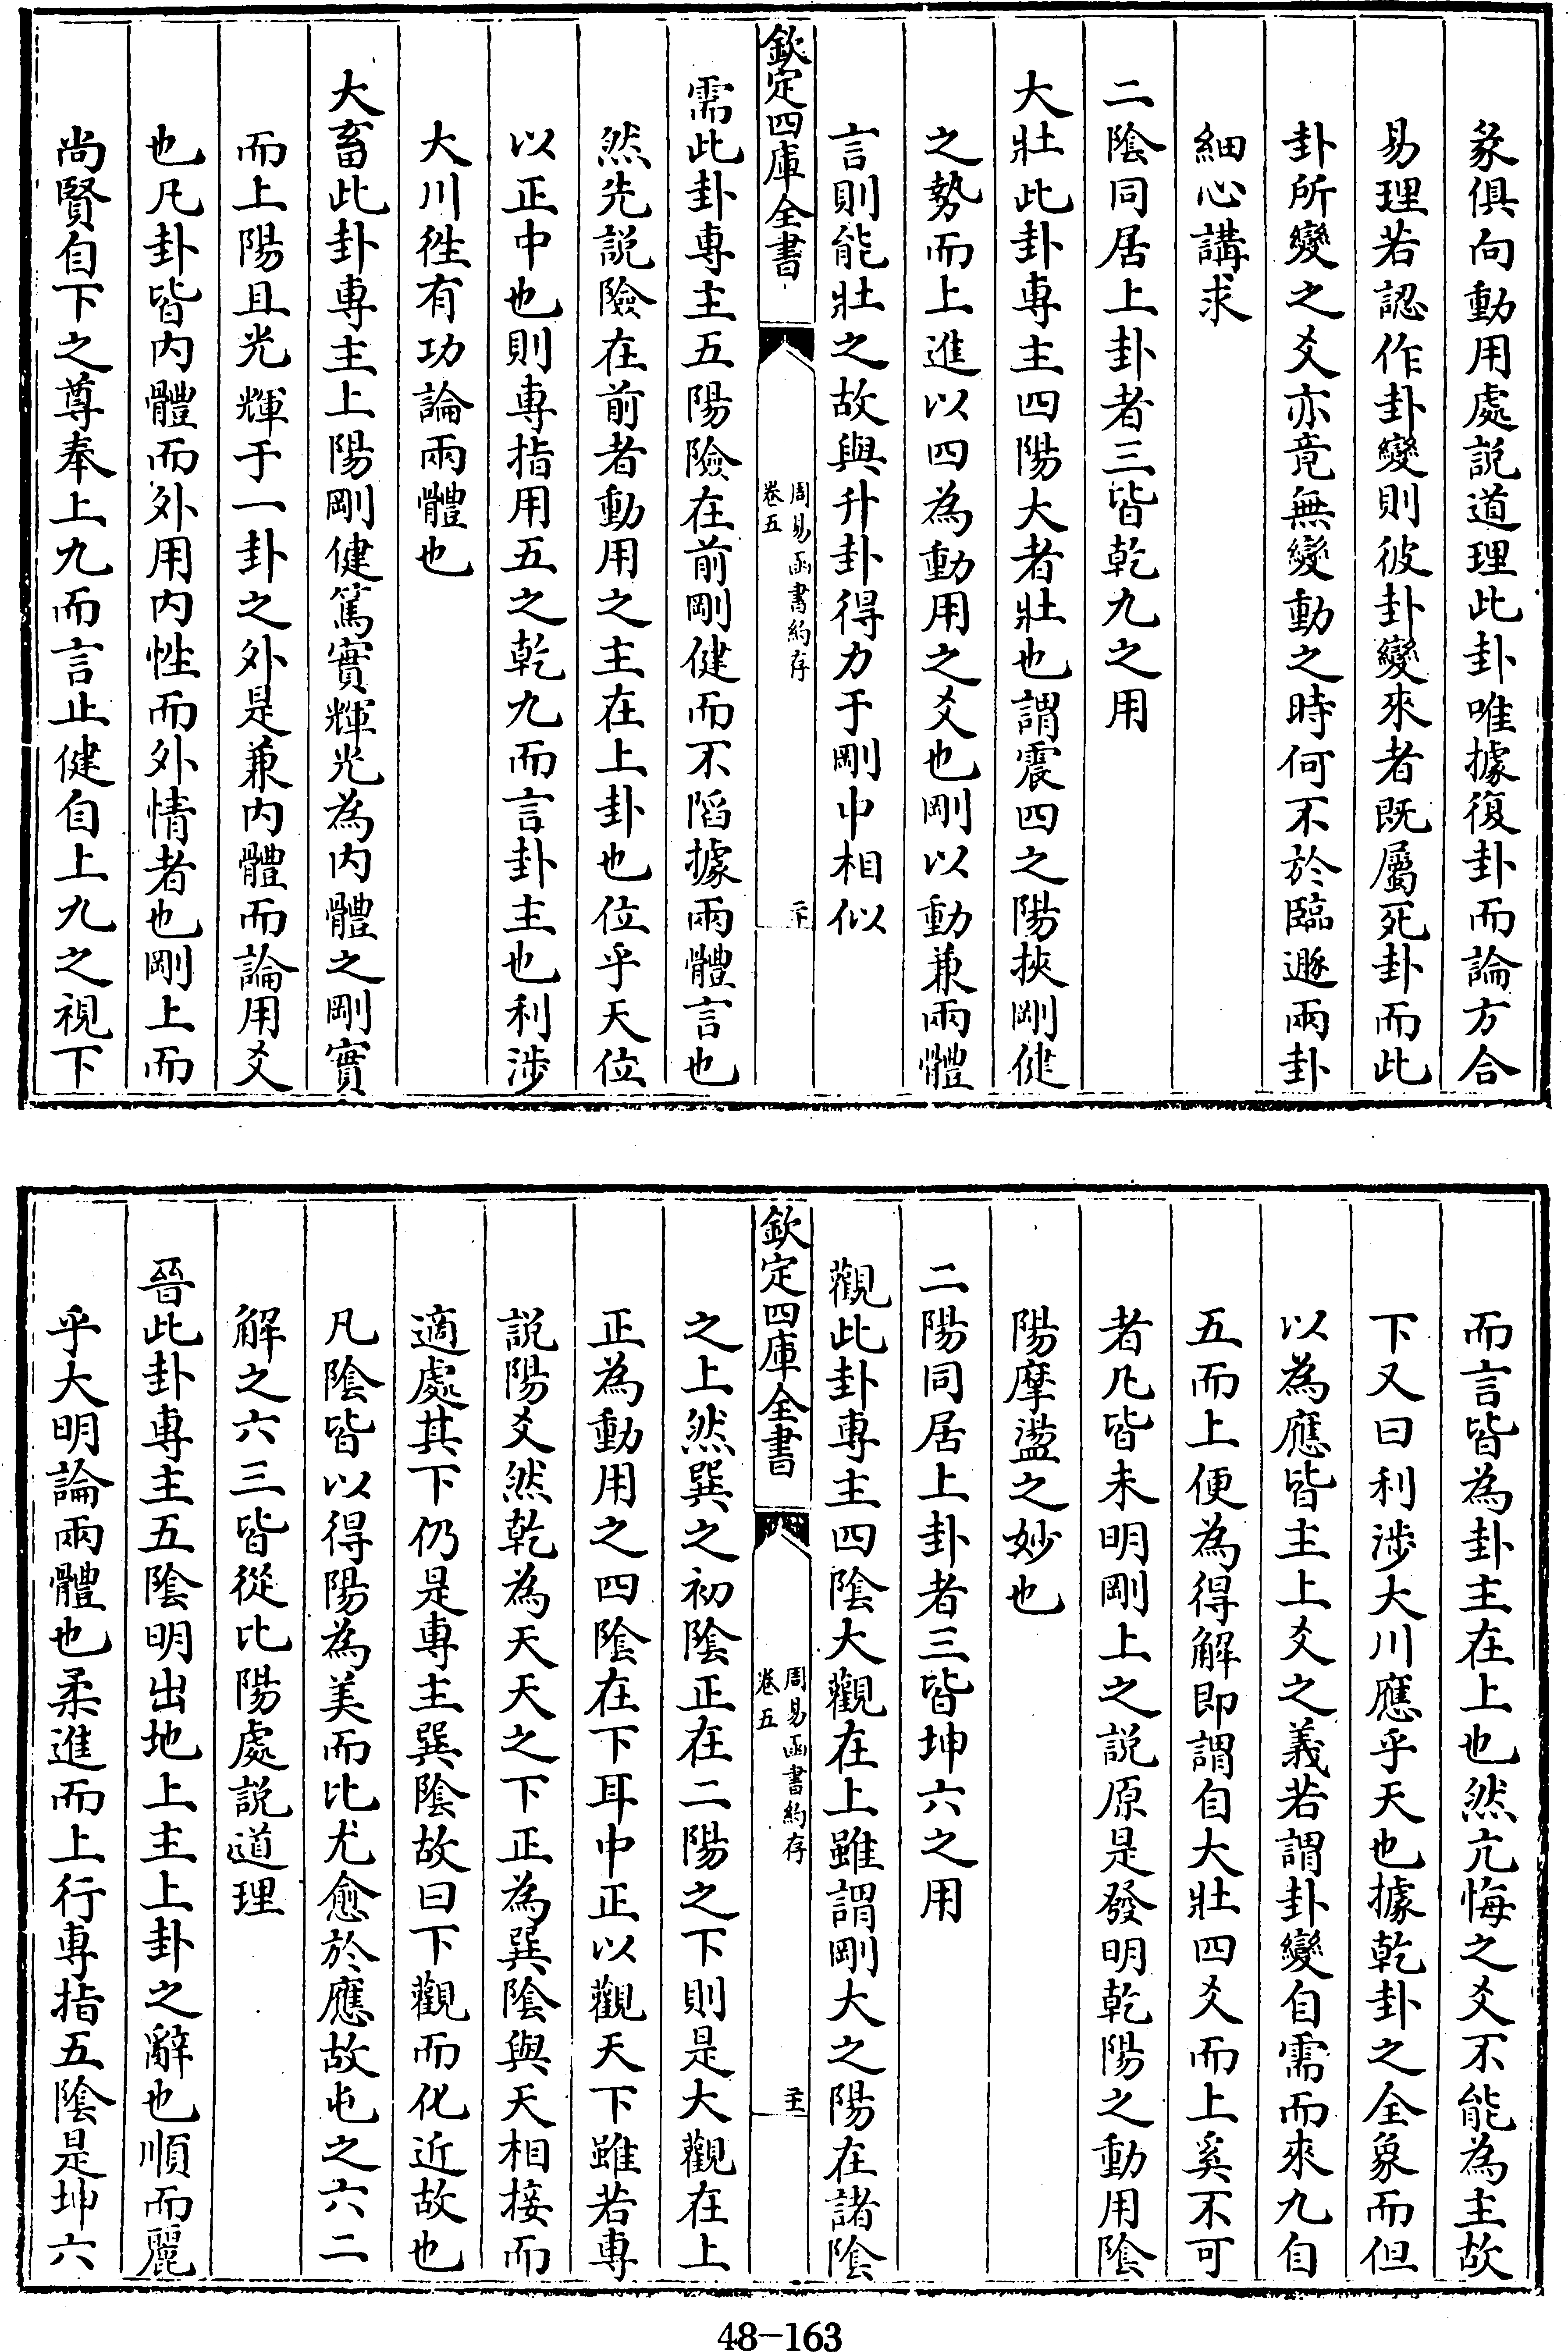 彖俱向動用處説道理此卦唯據復卦而論方合
易理若認作卦變則彼卦變來者既屬死卦而此
卦所變之爻亦竟無變動之時何不於臨遯兩卦
細心講求
二陰同居上卦者三皆乾九之用
大壯此卦專主四陽大者壯也謂震四之陽挾剛健
之勢而上進以四為動用之爻也剛以動兼兩體
言則能壯之故與升卦得力于剛中相似
欽定四庫全書
周易函書約存
卷五
需此卦專主五陽險在前剛健而不䧟據兩體言也
然先説險在前者動用之主在上卦也位乎天位
以正中也則專指用五之乾九而言卦主也利涉
大川徃有功論兩體也
大畜此卦專主上陽剛健篤實輝光為内體之剛實
而上陽且光輝于一卦之外是兼内體而論用爻
也凡卦皆内體而外用内性而外情者也剛上而
尚賢自下之尊奉上九而言止健自上九之視下
而言皆為卦主在上也然亢悔之爻不能為主故
下又曰利涉大川應乎天也據乾卦之全象而但
以為應皆主上爻之義若謂卦變自需而來九自
五而上便為得解即謂自大壯四爻而上奚不可
者凡皆未明剛上之説原是發明乾陽之動用陰
陽摩盪之妙也
二陽同居上卦者三皆坤六之用
觀此卦專主四陰大觀在上雖謂剛大之陽在諸陰
欽定四庫全書
周易函書約存
卷五
之上然巽之初陰正在二陽之下則是大觀在上
正為動用之四陰在下耳中正以觀天下雖若專
説陽爻然乾為天天之下正為巽陰與天相接而
適處其下仍是專主巽陰故曰下觀而化近故也
凡陰皆以得陽為美而比尤愈於應故屯之六二
解之六三皆從比陽處説道理
晉此卦專主五陰明出地上主上卦之辭也順而麗
乎大明論兩體也柔進而上行專指五陰是坤六
48-163